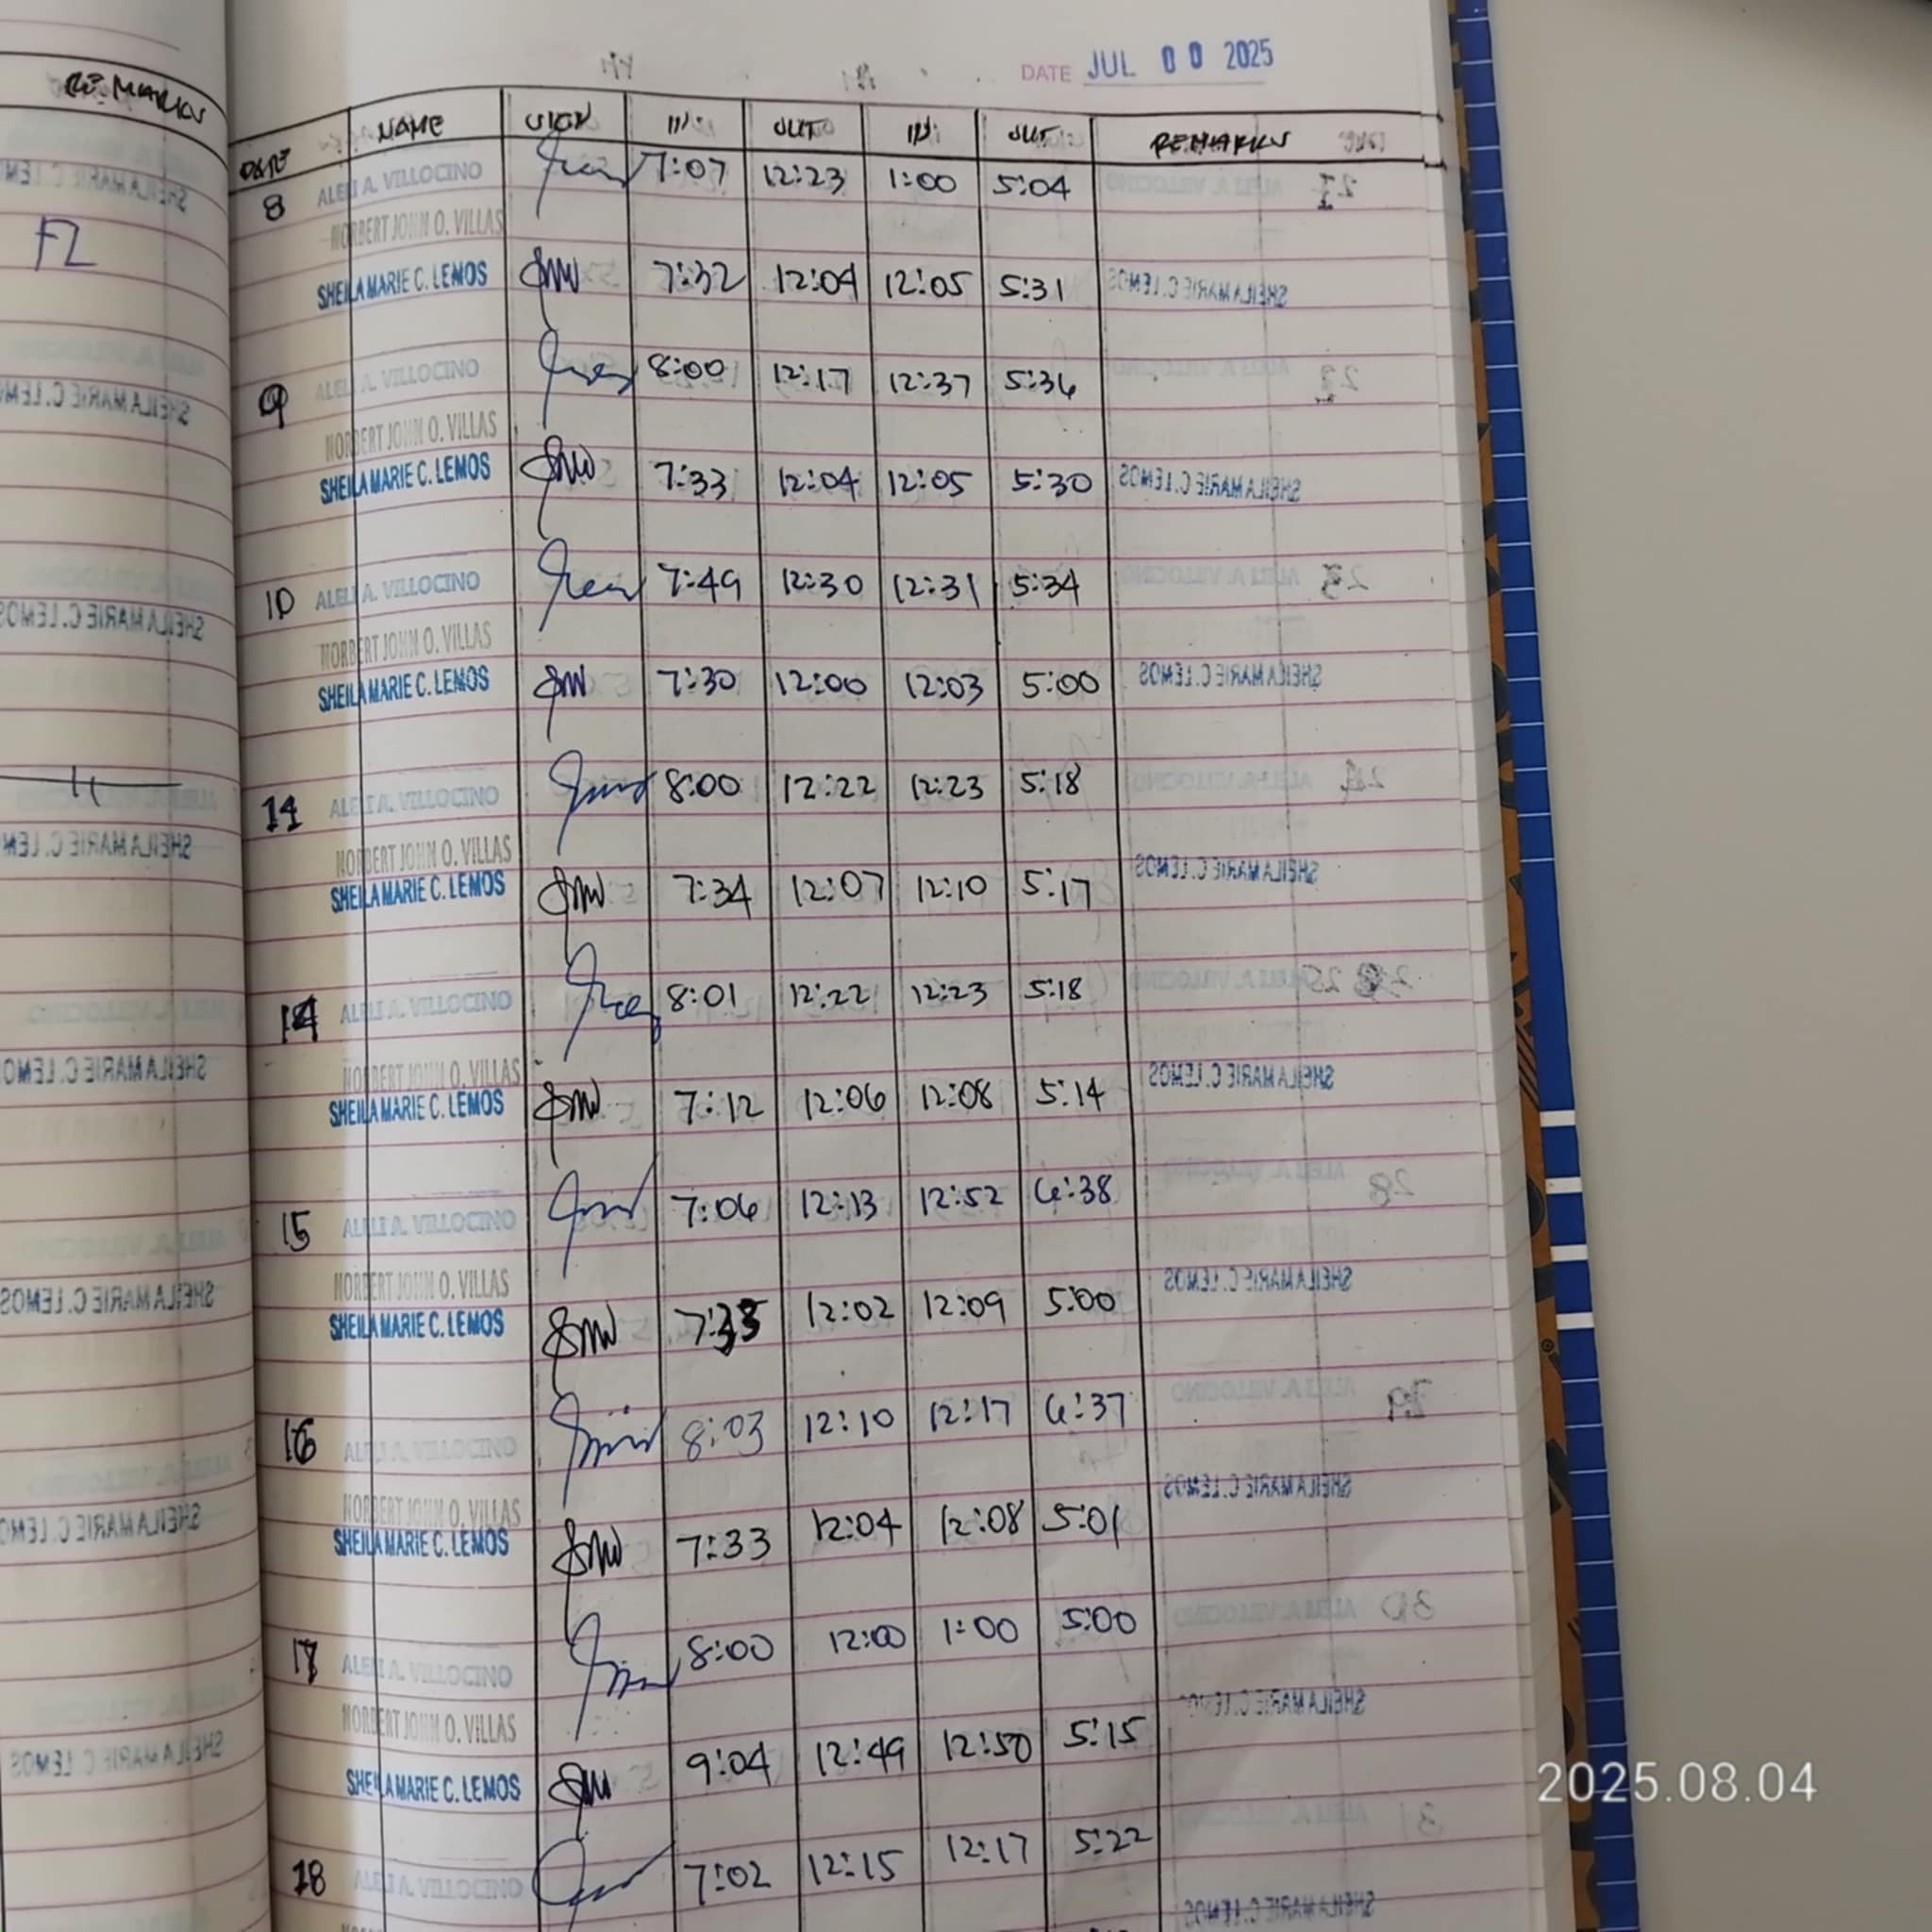 REMARKS
FZ
DATE JUL 00 2025
DATE NAME SIGN IN: OUT IN: OUT REMARKS
8 ALELI A. VILLOCINO 7:07 12:23 1:00 5:04
NORBERT JOHN O. VILLAS
SHEILA MARIE C. LEMOS 7:32 12:04 12:05 5:31
9 ALELI A. VILLOCINO 8:00 12:17 12:37 5:36
NORBERT JOHN O. VILLAS
SHEILA MARIE C. LEMOS 7:33 12:04 12:05 5:30
10 ALELI A. VILLOCINO 7:49 12:30 12:31 5:34
NORBERT JOHN O. VILLAS
SHEILA MARIE C. LEMOS 7:30 12:00 12:03 5:00
11 ALELI A. VILLOCINO 8:00 12:22 12:23 5:18
NORBERT JOHN O. VILLAS
SHEILA MARIE C. LEMOS 7:34 12:07 12:10 5:17
14 ALELI A. VILLOCINO 8:01 12:22 12:23 5:18
NORBERT JOHN O. VILLAS
SHEILA MARIE C. LEMOS 7:12 12:06 12:08 5:14
15 ALELI A. VILLOCINO 7:06 12:13 12:52 6:38
NORBERT JOHN O. VILLAS
SHEILA MARIE C. LEMOS 12:02 12:09 5:00
16 ALELI A. VILLOCINO 8:03 12:10 12:17 6:37
NORBERT JOHN O. VILLAS
SHEILA MARIE C. LEMOS 7:33 12:04 12:08 5:01
17 ALELI A. VILLOCINO 8:00 12:00 1:00 5:00
NORBERT JOHN O. VILLAS
SHEILA MARIE C. LEMOS 9:04 12:49 12:50 5:15
18 ALELI A. VILLOCINO 7:02 12:15 12:17 5:22
2025.08.04